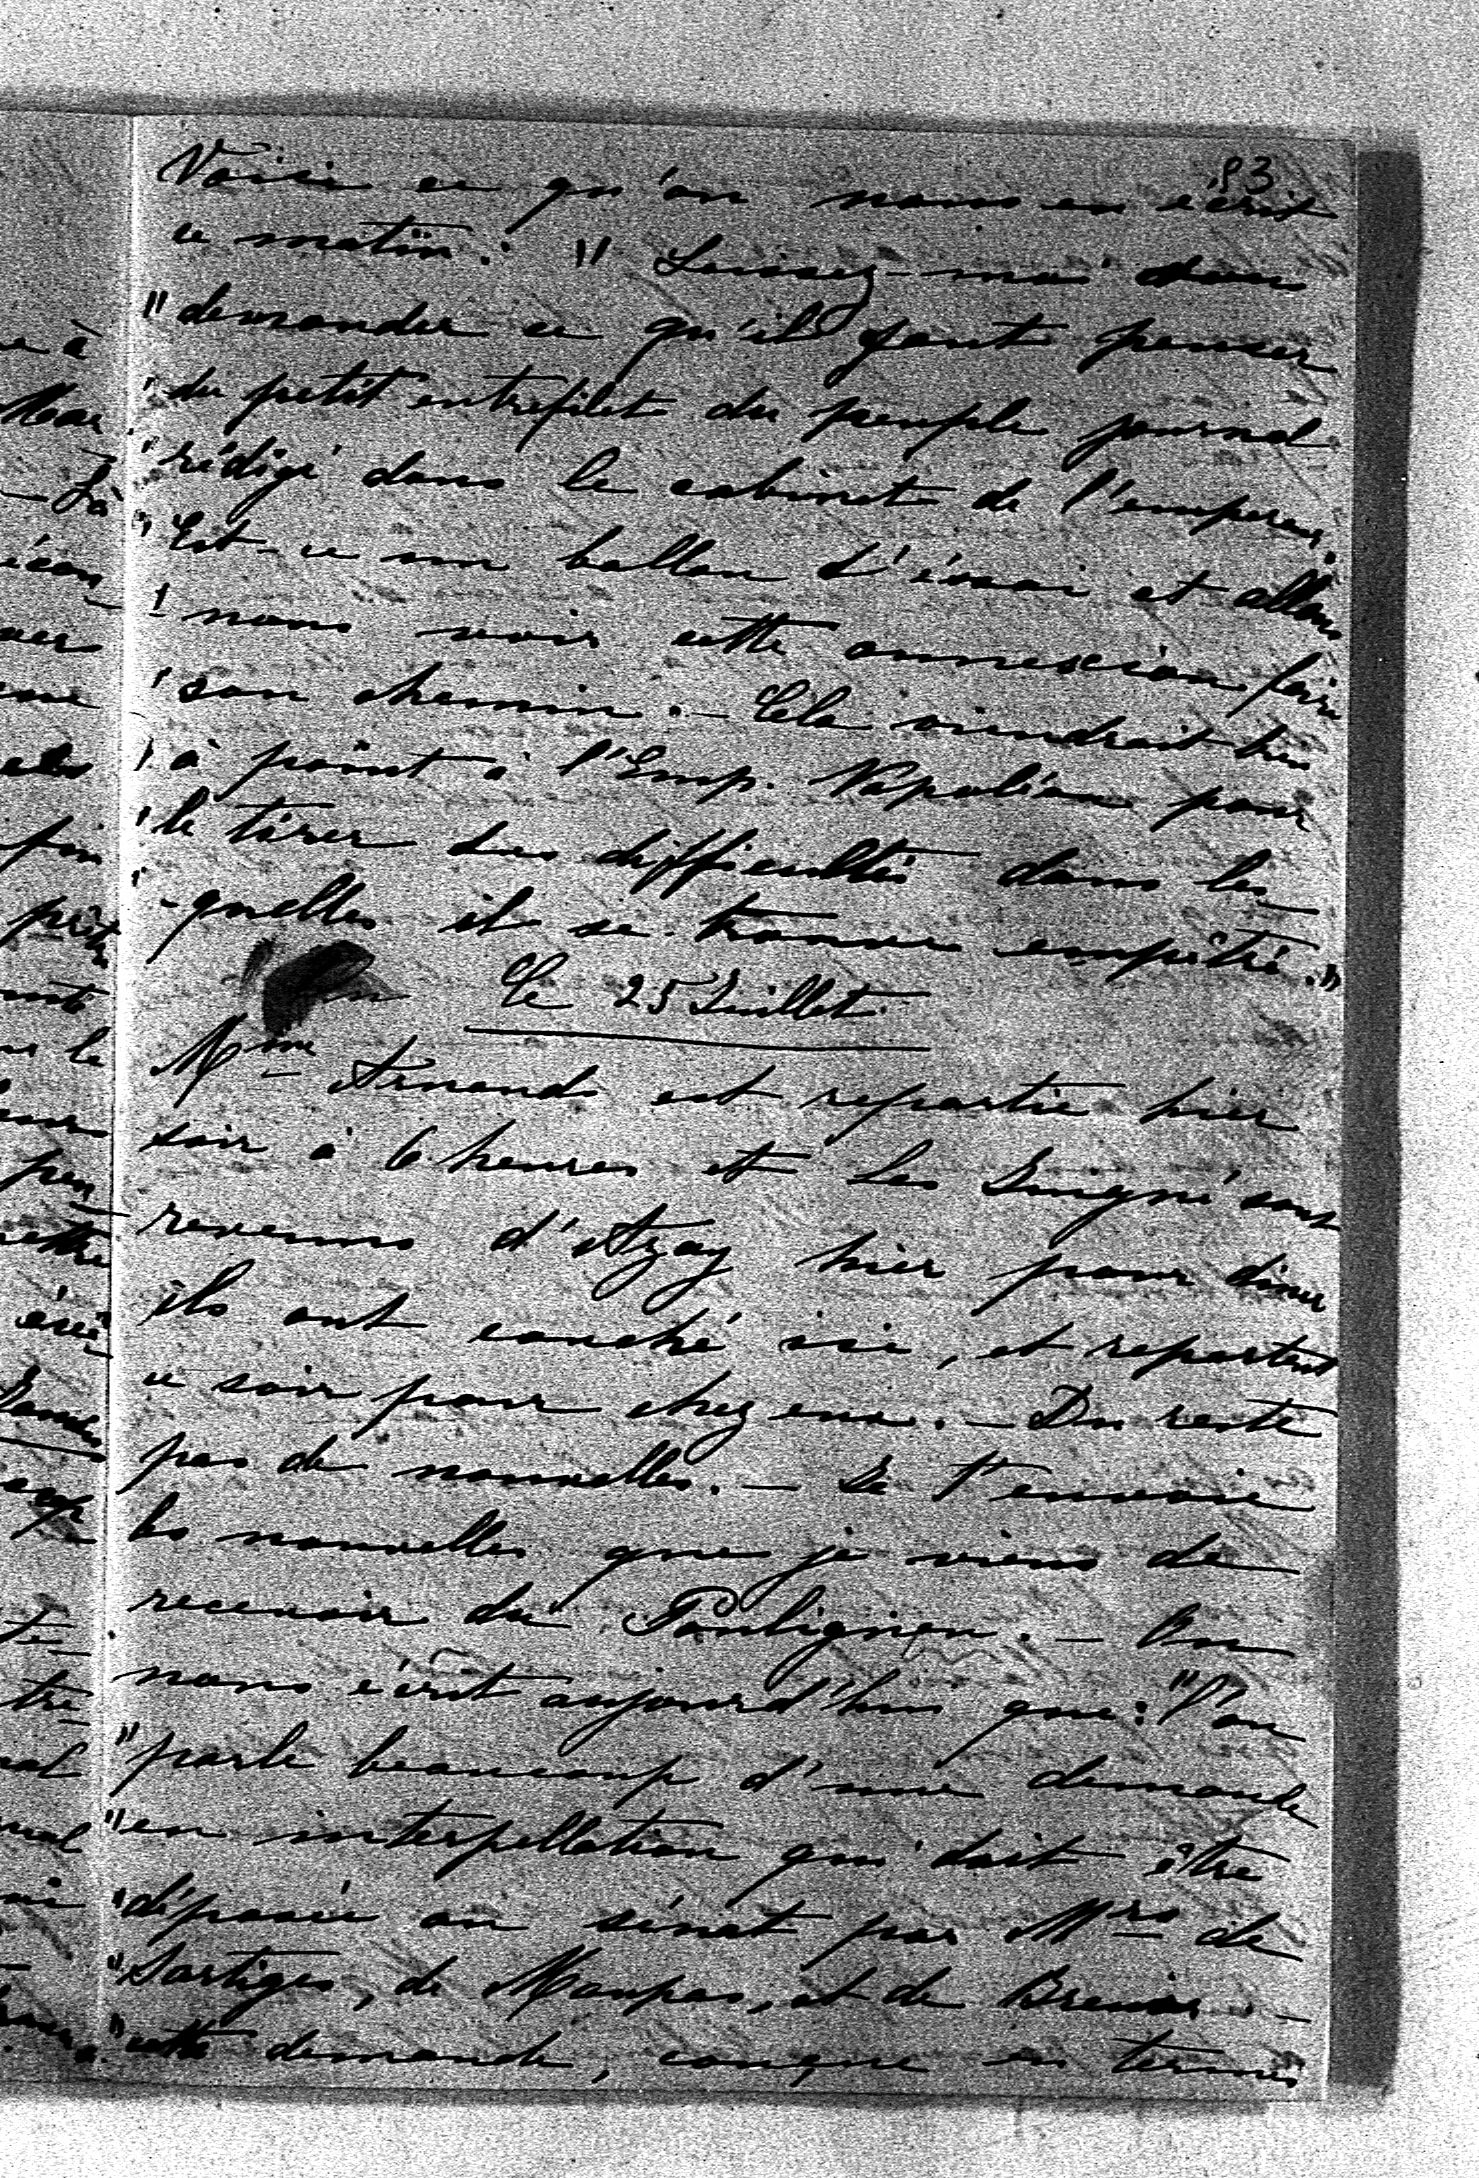 93.
Voici ce qu'on nous en écrit
ce matin : " Laissez-moi donc
" demander ce qu'il faut penser
" du petit entrefilet du peuple journal
" rédigé dans le cabinet de l'empereur.
" Est-ce un ballon d'éssai et allons
" nous voir cette annexion faire
" son chemin. - Cela viendrait bien
" à point à l'Emp. Napoléon pour
" le tirer des difficultés dans les
" -quelles il se trouve empêtré."
Le 25 Juillet.
Mme Armand est repartie hier
soir à 6 heures et les sont
revenus d'Azay hier pour diner
ils ont couché ici, et repartent
ce soir pour chez eux. - Du reste
pas de nouvelles. - Je t'envoie
les nouvelles que je viens de
recevoir du Pouliguen. - On
nous écrit aujourd'hui que : "l'on
" parle beaucoup d'une demande
" en interpellation qui doit être
" déposée au sénat par Mrs de
" Sartiges, de Maupas, et de -
" cette demande, conçue en termes